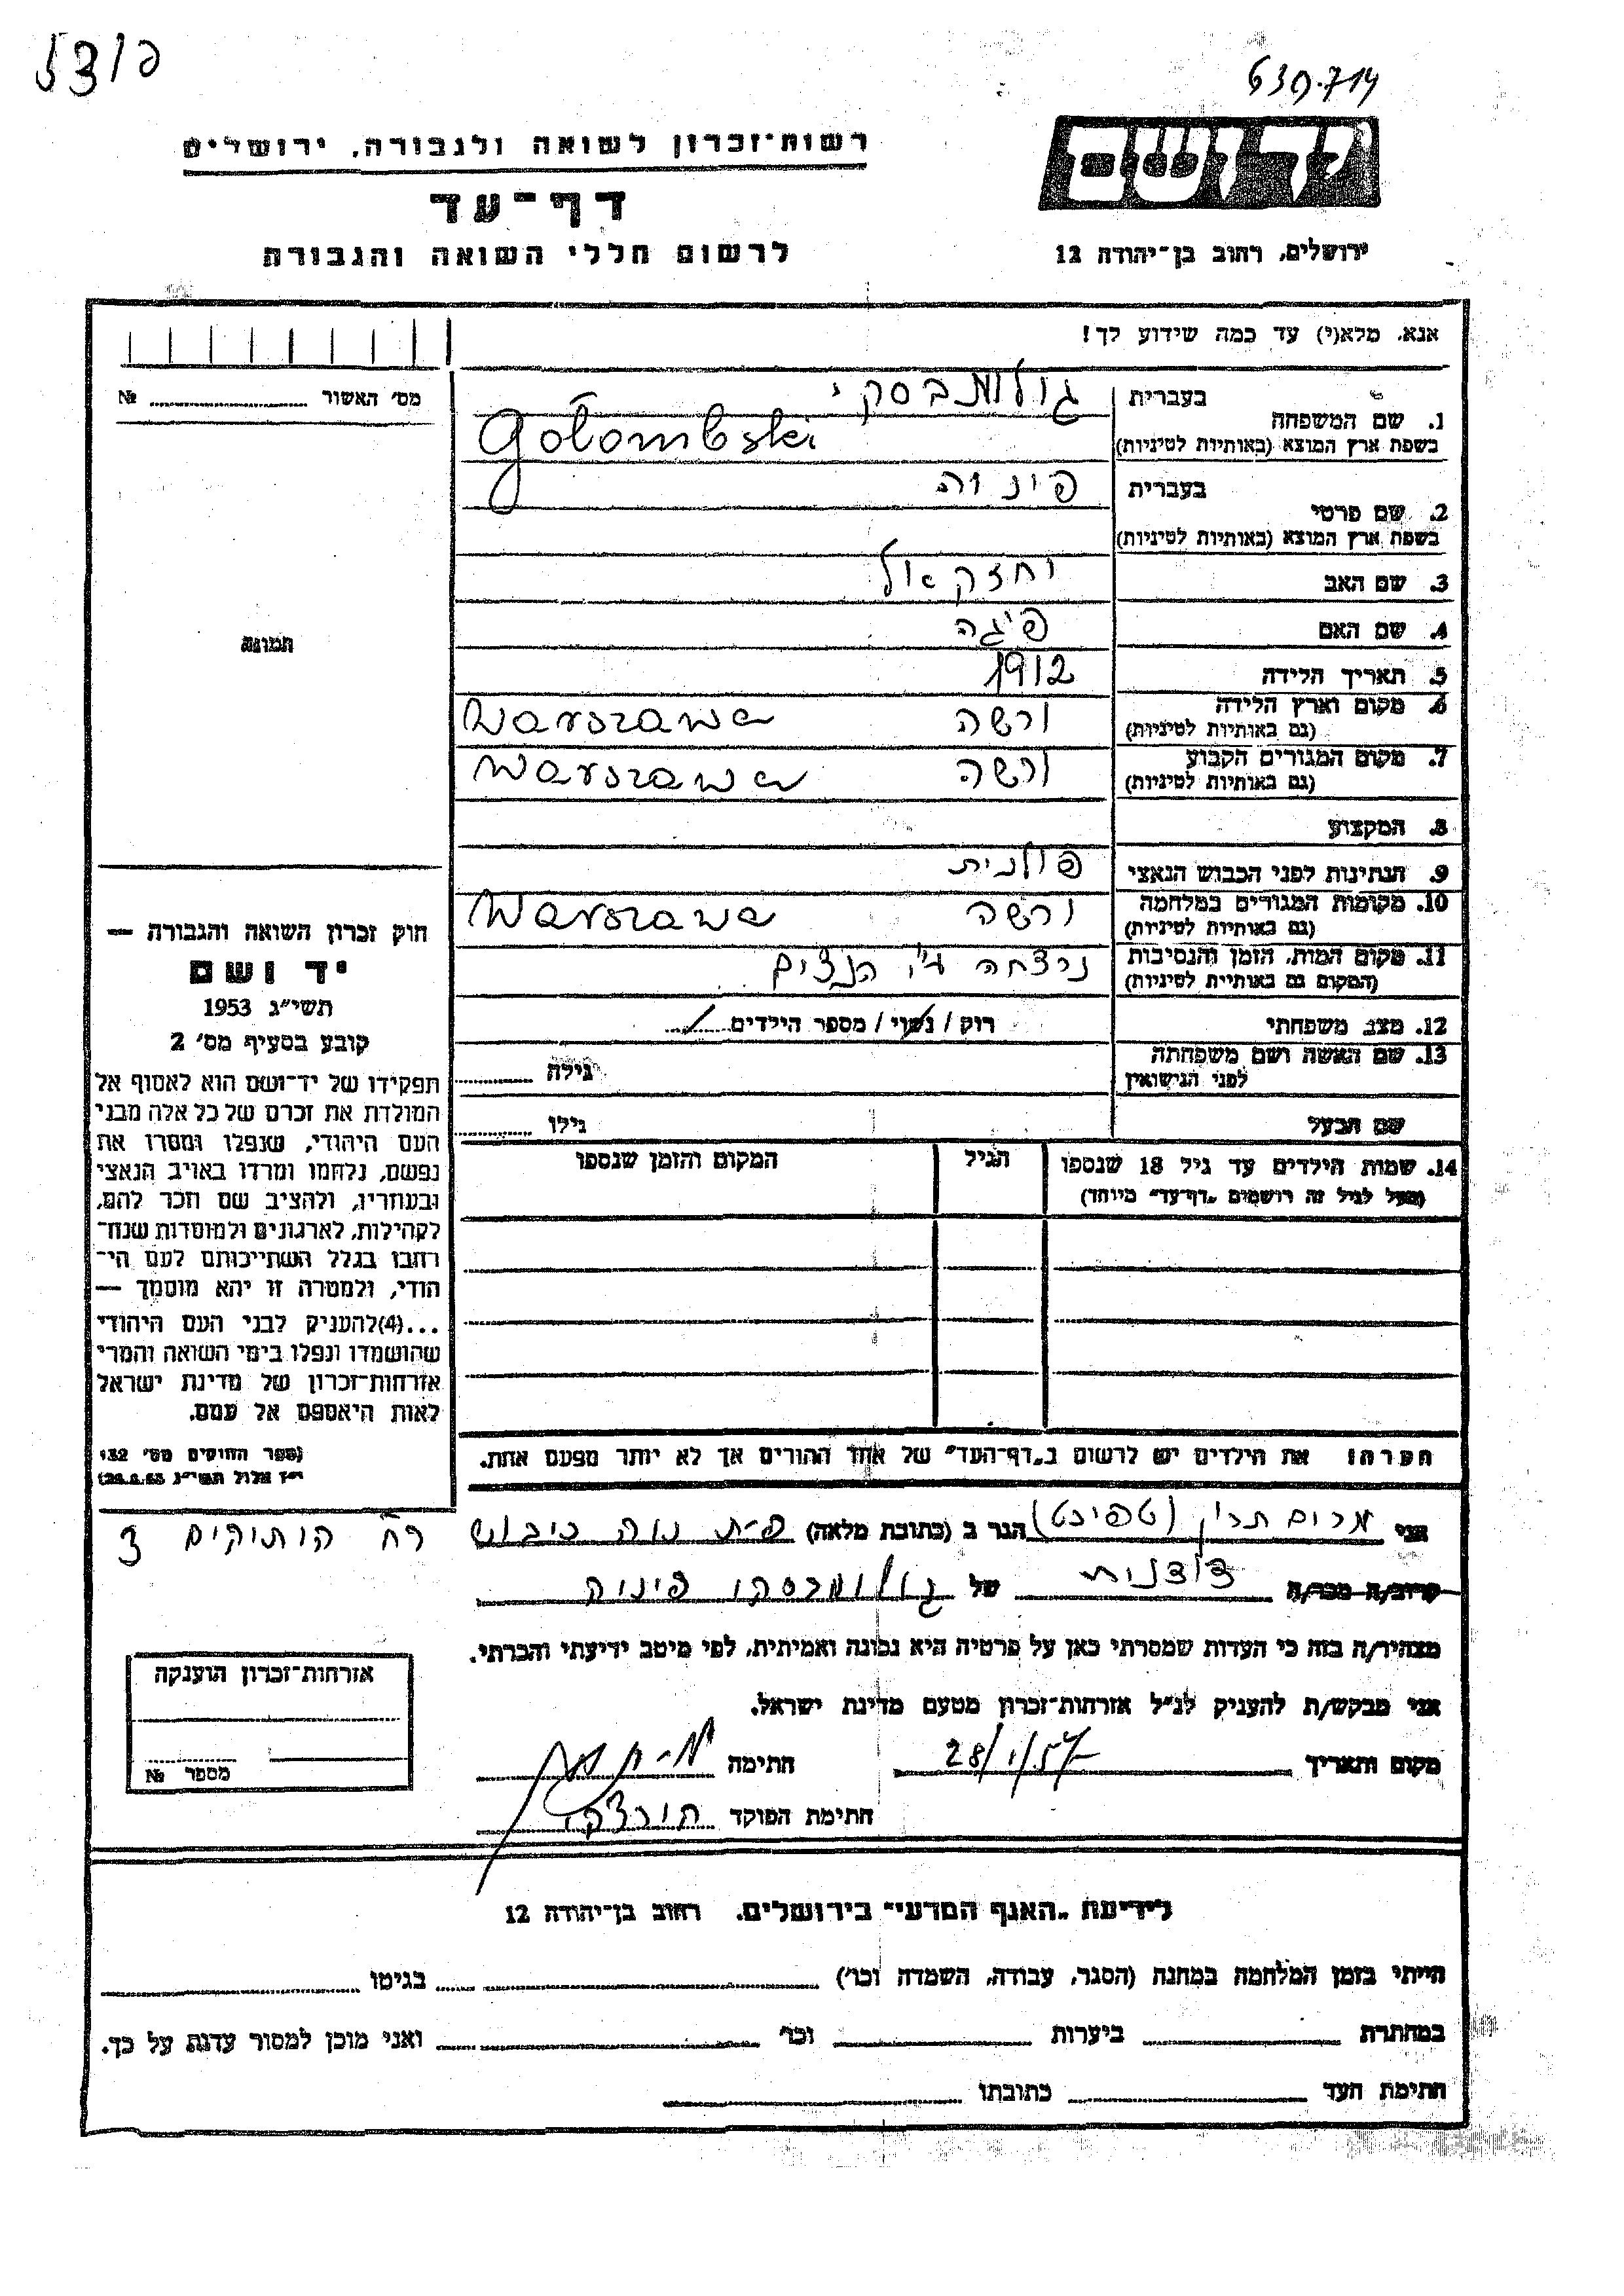 630.714
רשות־זכרון לשואה ולגבורה, ירושלים
יד ושם
דף־עד
לרשום חללי השואה והגבורה
ירושלים, רחוב בן־יהודה 12
אנא, מלא(י) עד כמה שידוע לך!
מס׳ האשור №
בעברית
1. שם המשפחה
בשפת ארץ המוצא (באותיות לטיניות)
Gołombski
בעברית
2. שם פרטי
בשפת ארץ המוצא (באותיות לטיניות)
3. שם האב יחזקאל
4. שם האם פיגה
תמונה
5. תאריך הלידה 1912
6. מקום וארץ הלידה ורשה Warszawa
(גם באותיות לטיניות)
7. מקום המגורים הקבוע ורשה Warszawa
(גם באותיות לטיניות)
8. המקצוע
9. הנתינות לפני הכבוש הנאצי פולנית
10. מקומות המגורים במלחמה ורשה Warszawa
(גם באותיות לטיניות)
11. מקום המות, הזמן והנסיבות נרצחה ע״י הנצים
(המקום גם באותיית לטיניות)
12. מצב משפחתי רוק / נשוי / מספר הילדים
13. שם האשה ושם משפחתה
לפני הנישואין גילה
שם הבעל גילו
14. שמות הילדים עד גיל 18 שנספו הגיל המקום והזמן שנספו
(מעל לגיל זה רושמים „דף־עד״ מיוחד)
חוק זכרון השואה והגבורה —
יד ושם
תשי״ג 1953
קובע בסעיף מס׳ 2
תפקידו של יד־ושם הוא לאסוף אל
המולדת את זכרם של כל אלה מבני
העם היהודי, שנפלו ומסרו את
נפשם, נלחמו ומרדו באויב הנאצי
ובעוזריו, ולהציב שם וזכר להם,
לקהילות, לארגונים ולמוסדות שנח־
רבו בגלל השתייכותם לעם הי־
הודי, ולמטרה זו יהא מוסמך —
...(4)להעניק לבני העם היהודי
שהושמדו ונפלו בימי השואה והמרי
אזרחות־זכרון של מדינת ישראל
לאות היאספם אל עמם.
(ספר החוקים מס׳ 132,
הערה: את הילדים יש לרשום ב„דף־העד״ של אחד ההורים אך לא יותר מפעם אחת.
אני מרים הגר ב (כתובת מלאה) פ״ת נוה כיבוש
רח הותיקים 3
קרוב/ה מכר/ה של גולומבסקי
מצהיר/ה בזה כי העדות שמסרתי כאן על פרטיה היא נכונה ואמיתית, לפי מיטב ידיעתי והכרתי.
אני מבקש/ת להעניק לנ״ל אזרחות־זכרון מטעם מדינת ישראל.
מקום ותאריך 28/1/57 חתימה
חתימת הפוקד
אזרחות־זכרון הוענקה
מספר №
לידיעת „האגף המדעי״ בירושלים, רחוב בן־יהודה 12
הייתי בזמן המלחמה במחנה (הסגר, עבודה, השמדה וכו׳) בגיטו
במחתרת ביערות וכו׳ ואני מוכן למסור עדות על כך.
חתימת העד כתובתו